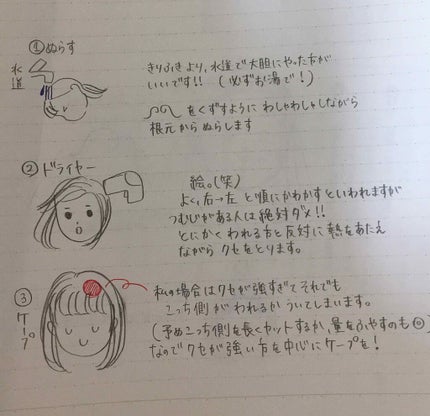 ①ぬらす
水道
きりふきより、水道で大胆にやった方が
いいです!! (必ずお湯で!)
をくずすように わしゃわしゃしながら
根元からぬらします
②ドライヤー
絵。(笑)
よく、右→左 と順にかわかすといわれますが
つむじがある人は絶対ダメ!!
とにかくわれる方と反対に熱をあたえ
ながら クセをとります。
③ケープ
私の場合はクセが強すぎてそれでも
こっち側がわれるかういてしまいます。
(予めこっち側を長くカットするか、量をふやすのも◎)
なのでクセが強い方を中心にケープを!